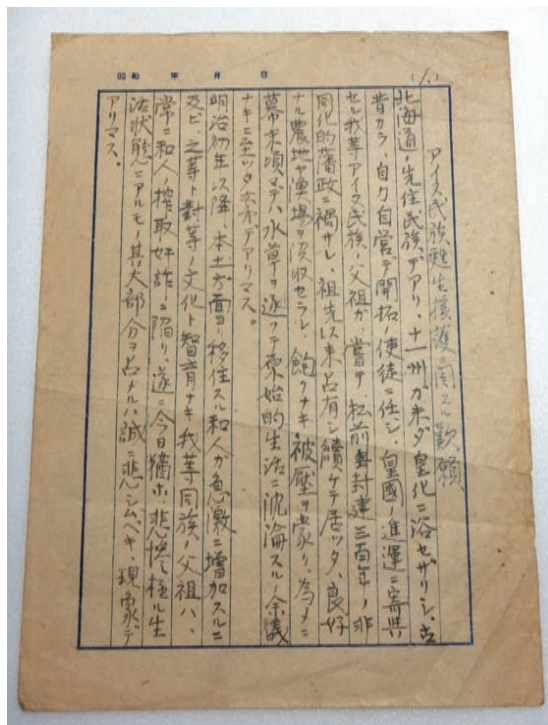 昭和　年　月　日
(1)
アイヌ民族甦生援護ニ関スル歎願
北海道ノ先住民族デアリ、十一州ガ未ダ皇化ニ浴セザリシ、古
昔カラ、自力自営デ開拓ノ使徒ニ任シ、皇國ノ進運ニ寄與
セル我等アイヌ民族ノ父祖ガ、嘗テ、松前藩封建三百年ノ非
同化的藩政ニ禍サレ、祖先以来占有シ續ケテ居ッタ、良好
ナル農地ヤ漁場ヲ没収セラレ、飽クナキ被壓ヲ蒙リ、為メニ
幕末頃マデハ水草ヲ逐フテ原始的生活ニ沈淪スルノ余議
ナキニ至ッタ次第デアリマス。
明治初年以降、本土方面ヨリ移住スル和人ガ急激ニ増加スルニ
及ビ、之等ト對等ノ文化ト智育ナキ我等同族ノ父祖ハ、
常ニ和人ノ搾取奸詐ニ陥リ、遂ニ今日猶ホ、悲惨極ル生
活状態ニアルモノ其大部分ヲ占メルハ誠ニ悲シムベキ、現象デ
アリマス。